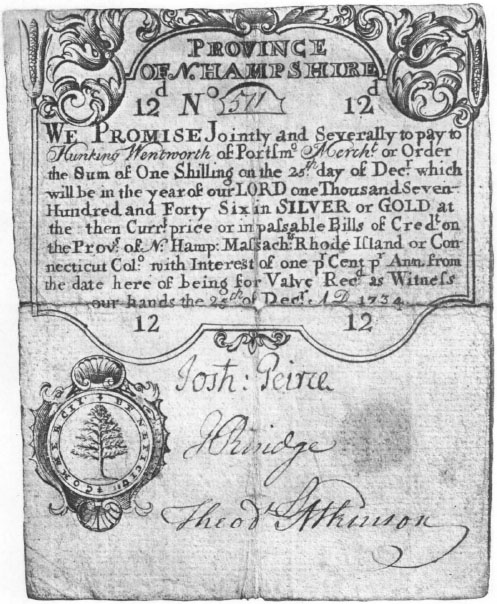 PROVINCE
OF N. HAMPSHIRE
12d No 571 12d
WE PROMISE Jointly and Severally to pay to
Hunking Wentworth of Portsmo. Mercht. or Order
the Sum of One Shilling on the 25th day of Decr. which
will be in the year of our LORD one Thousand Seven-
Hundred and Forty Six in SILVER or GOLD at
the then Currt. price or in passable Bills of Credt. on
the Prov. of N. Hamp: Massachts. Rhode Island or Con-
necticut Colo. with Interest of one pr Cent pr Ann. from
the date here of being for Valve Recd as Witness
our hands the 25th of Decr. AD. 1734
12 12
Josh: Peirce
J Rindge
Theodr Atkinson